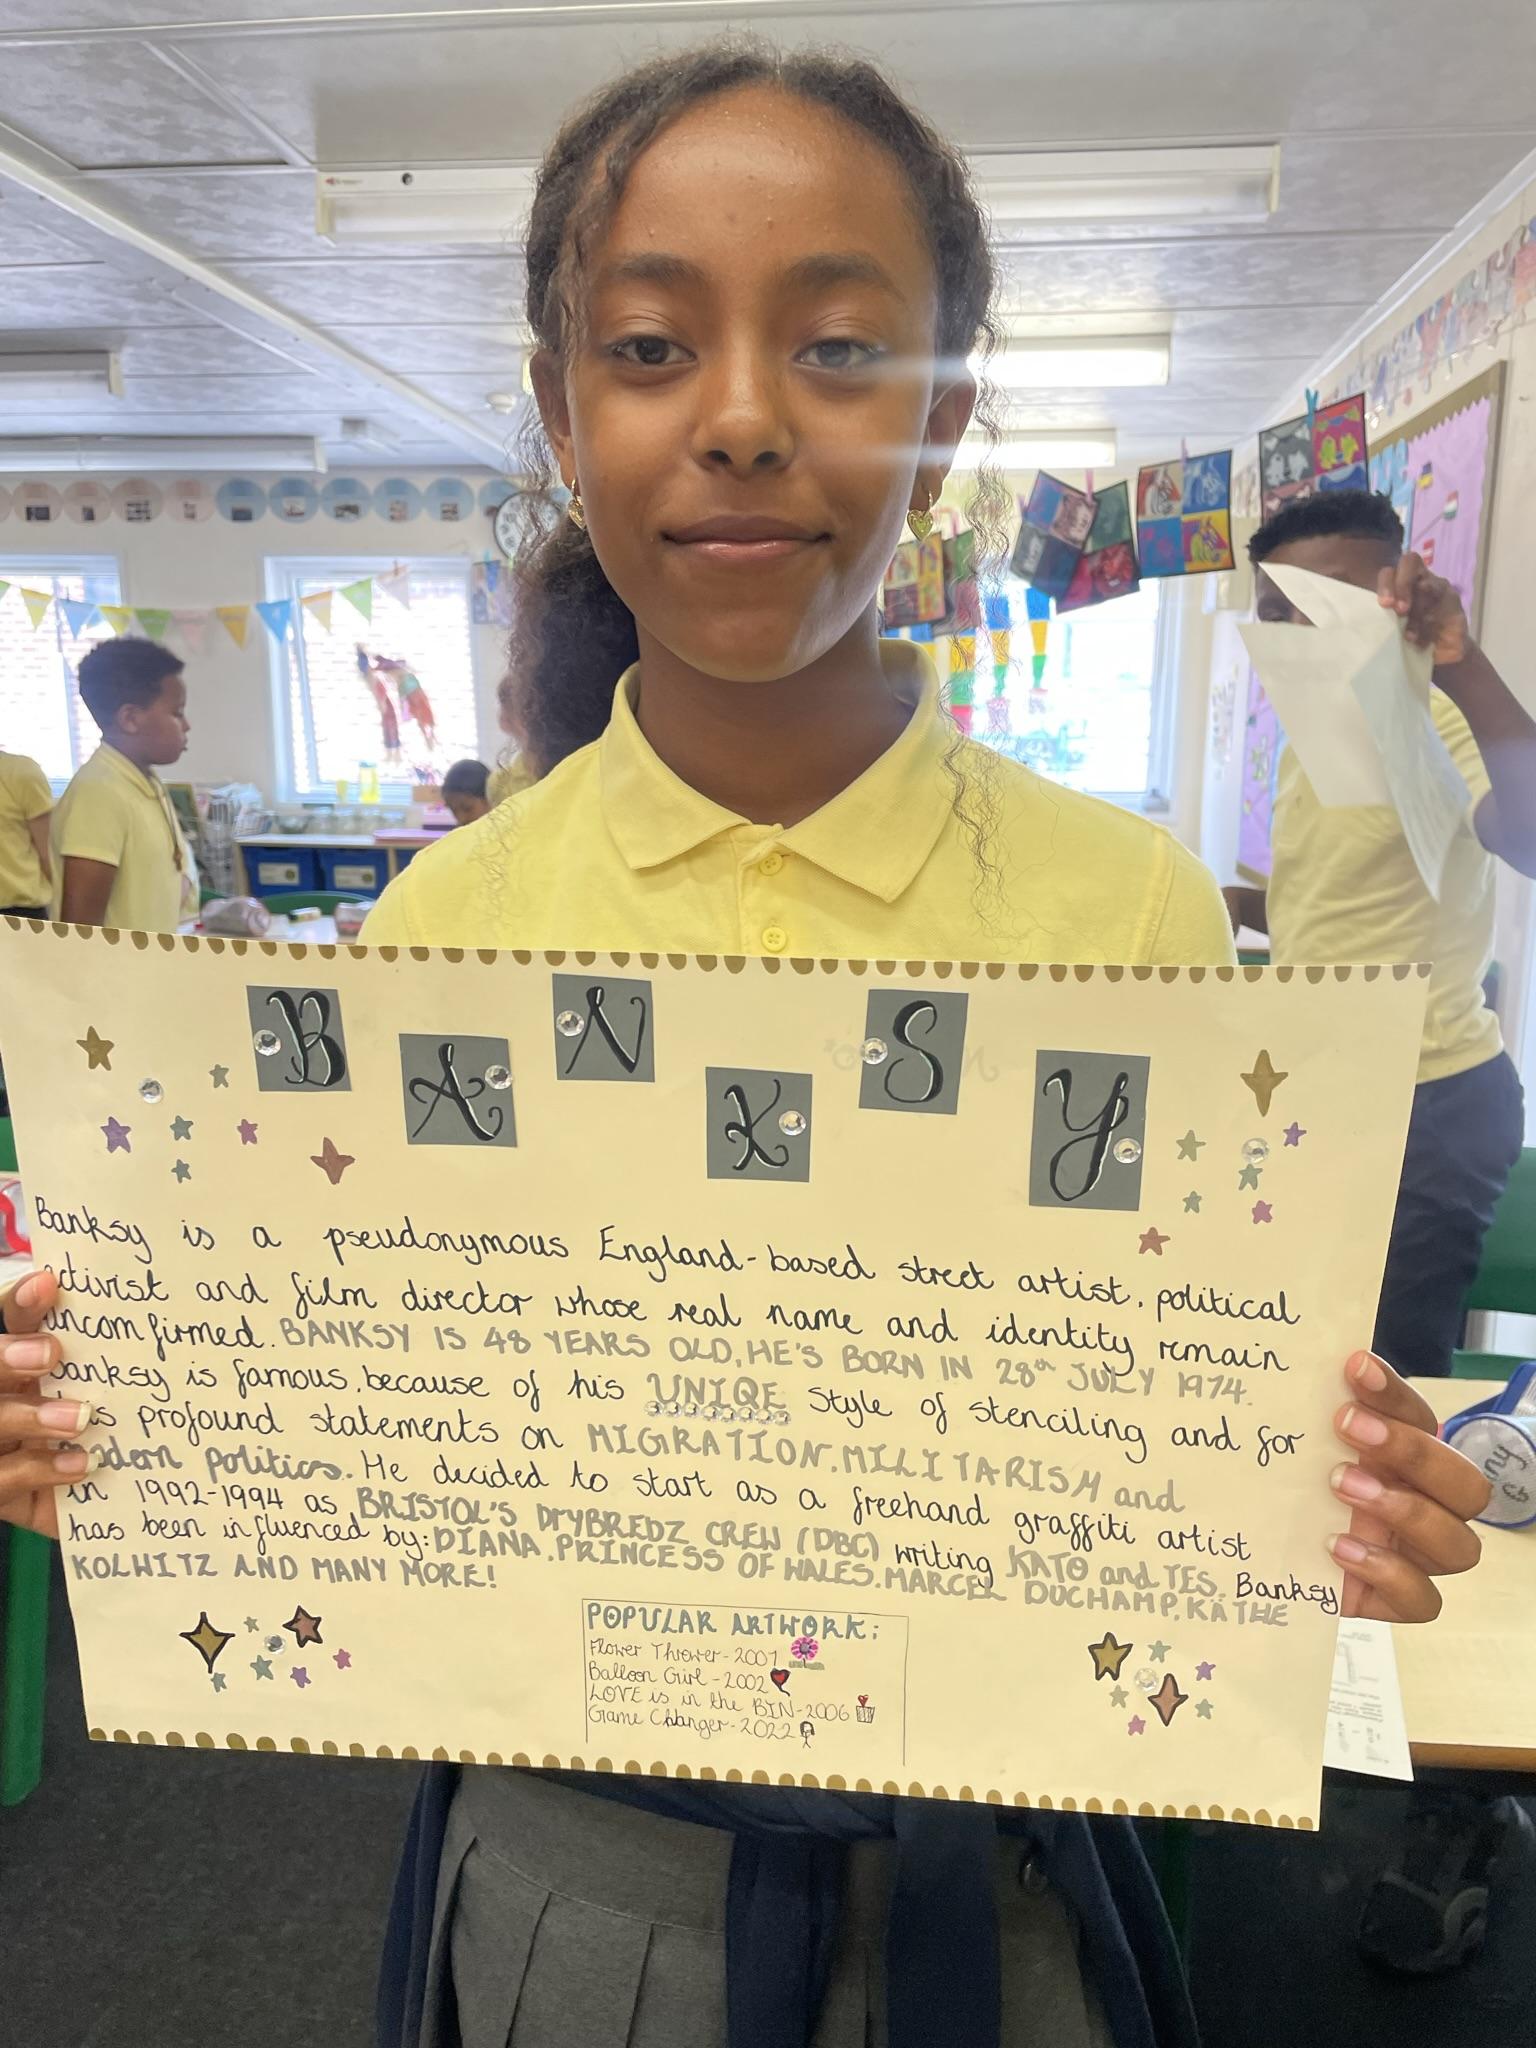 BANKSY
Banksy is a pseudonymous England-based street artist, political
activist and film director whose real name and identity remain
uncomfirmed. BANKSY IS 48 YEARS OLD, HE'S BORN IN 28th JULY 1974.
Banksy is famous, because of his UNIQE style of stenciling and for
his profound statements on MIGRATION, MILITARISM and
modern politics. He decided to start as a freehand graffiti artist
in 1992-1994 as BRISTOL'S DryBREDZ CREW (DBC) writing KATO and TES. Banksy
has been influenced by: DIANA, PRINCESS OF WALES, MARCEL DUCHAMP, KÄTHE
KOLWITZ AND MANY MORE!
POPULAR ARTWORK:
Flower Thrower-2001
Balloon Girl - 2002
LOVE is in the BIN-2006
Game Changer-2022